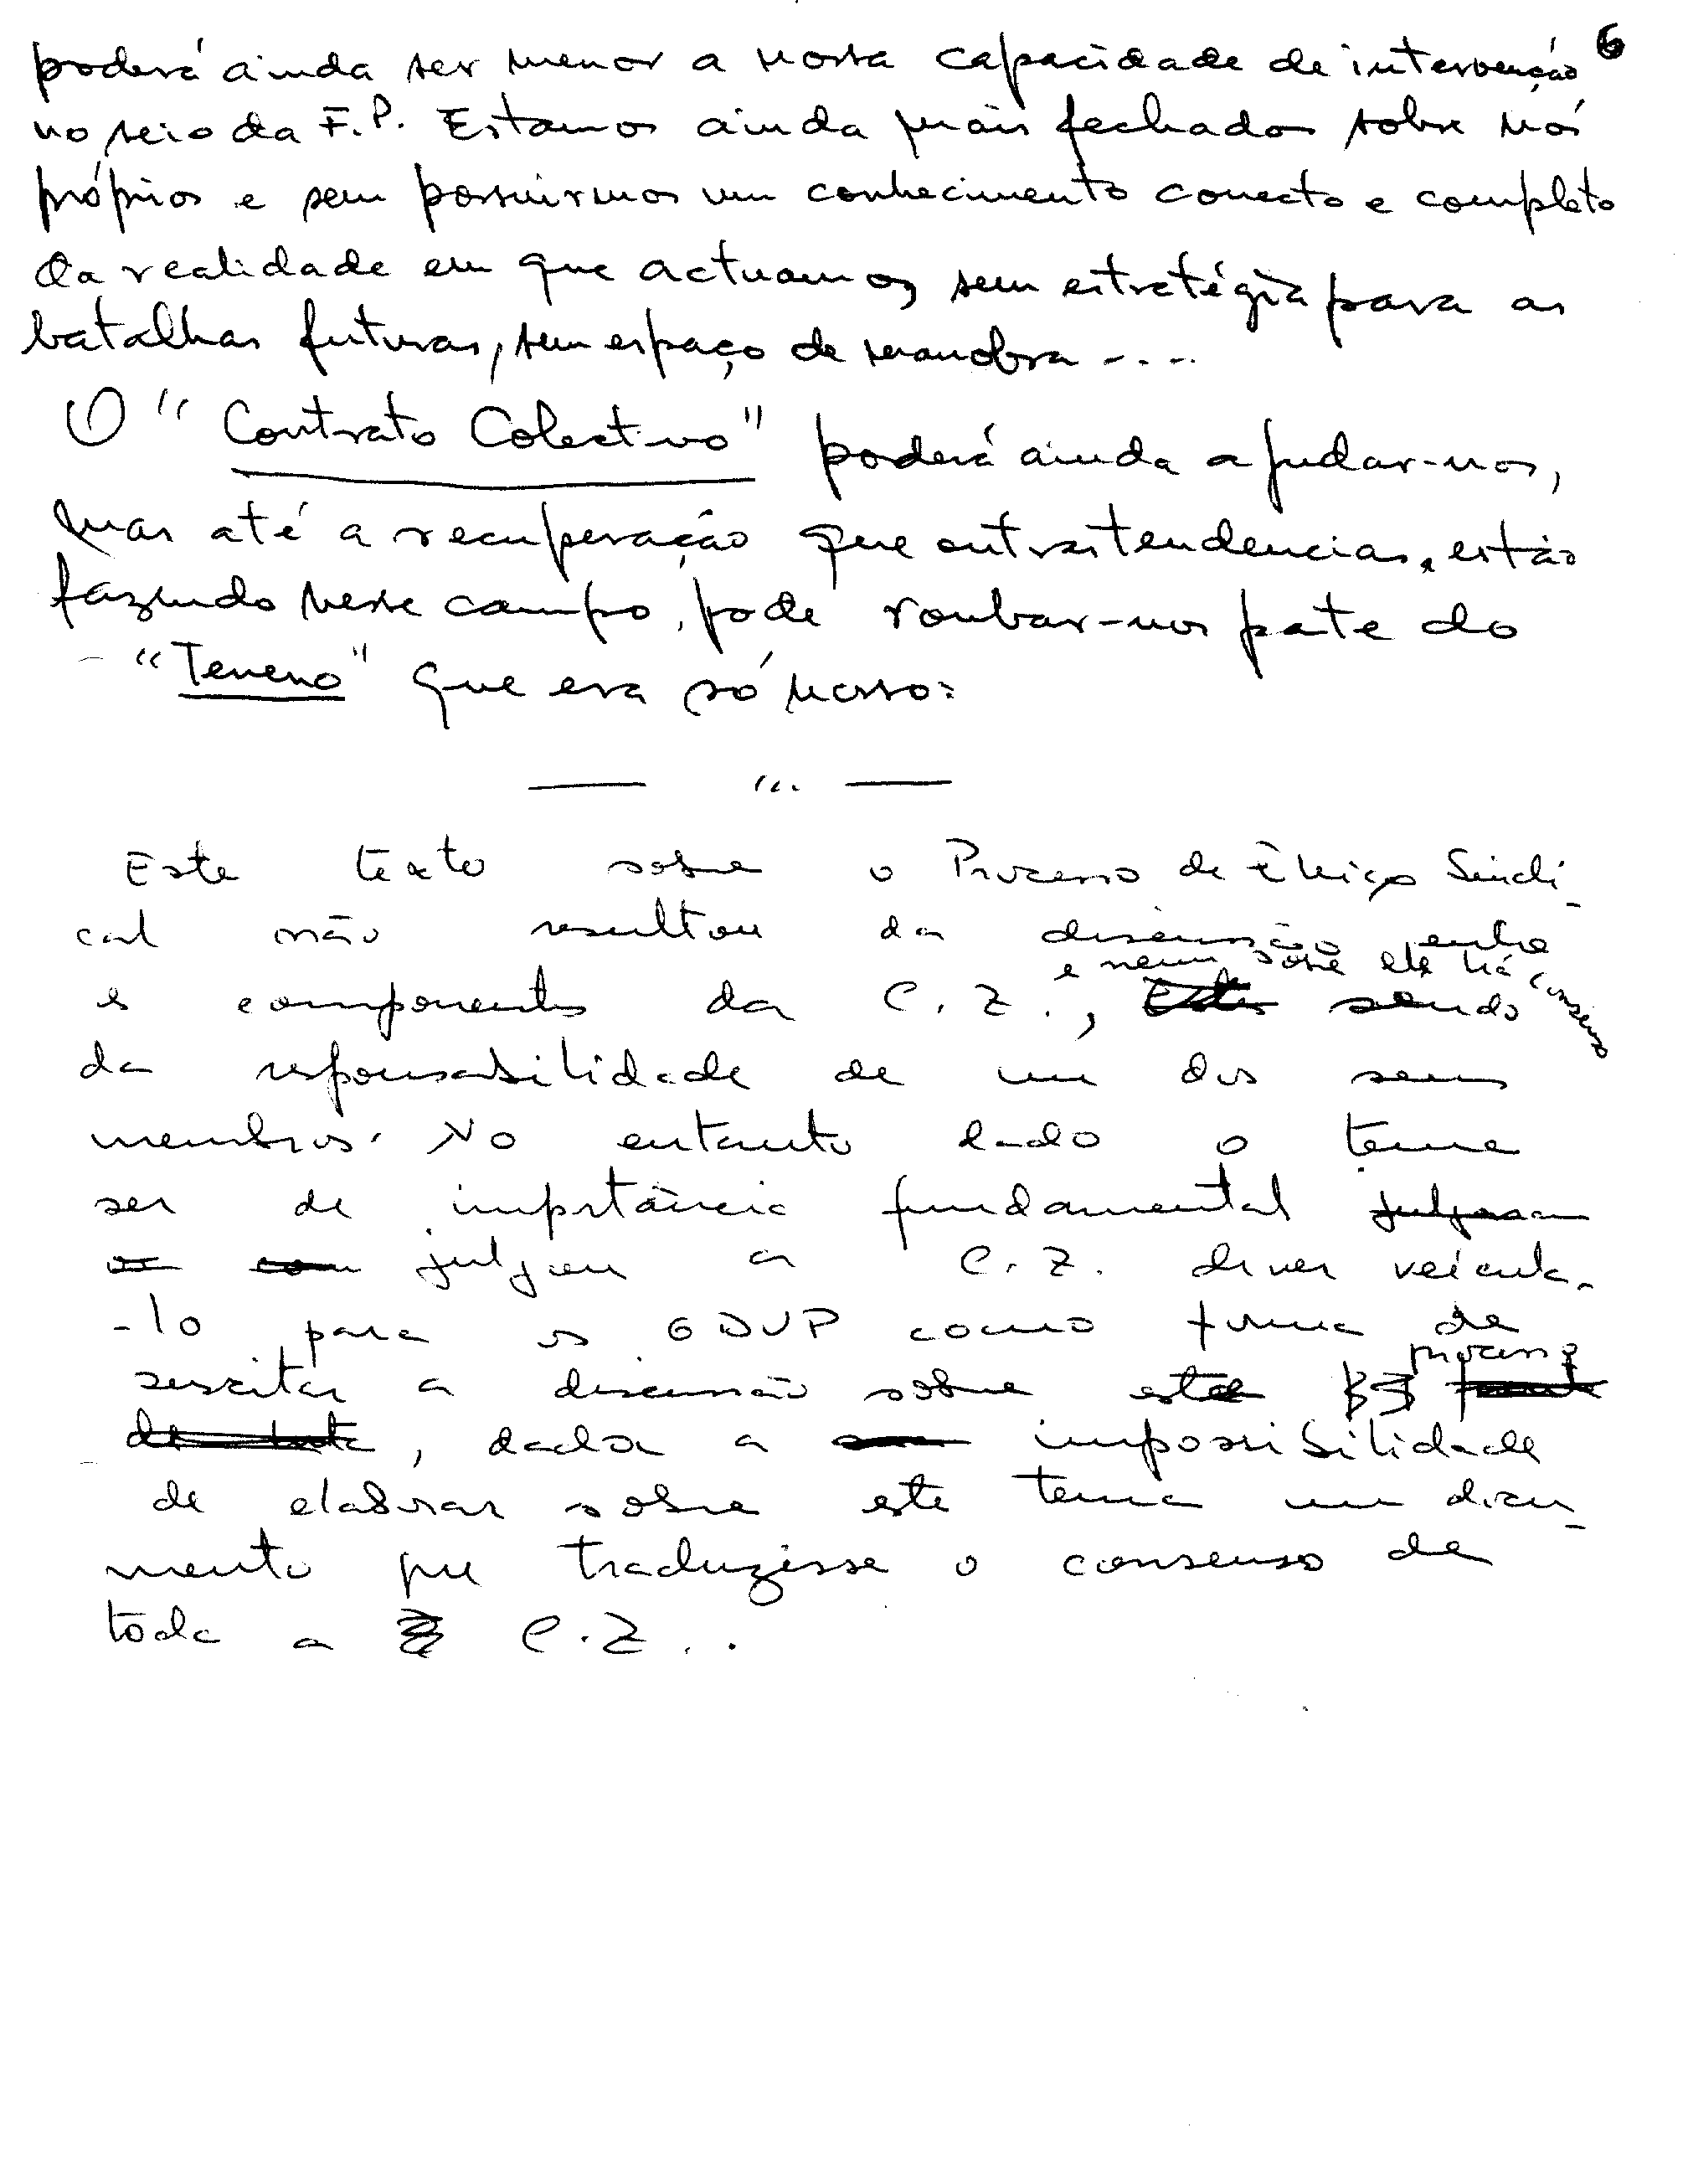 6
poderá ainda ser menor a nossa capacidade de intervenção
no seio da F.P. Estamos ainda mais fechados sobre nós
próprios e sem possuirmos um conhecimento correcto e completo
da realidade em que actuamos, sem estratégia para as
batalhas futuras, sem espaço de manobra ....
O "Contrato Colectivo" poderá ainda ajudar-nos,
mas até a recuperação que outras tendencias, estão
fazendo nesse campo, pode roubar-nos parte do
"Terreno" que era só nosso.
— "." —
Este texto sobre o Processo de Sindi-
cal não resultou da discussão entre
e nem sobre ele há consenso
os componentes da C.Z., sendo
da responsabilidade de um dos seus
membros. No entanto dado o tema
ser de importância fundamental julgou
julgou a C.Z. dever veicula-
-lo para os GDUP como forma de
processo
suscitar a discussão sobre este
, dada a impossibilidade
de elaborar sobre este tema um docu-
mento que traduzisse o consenso de
toda a C.Z..